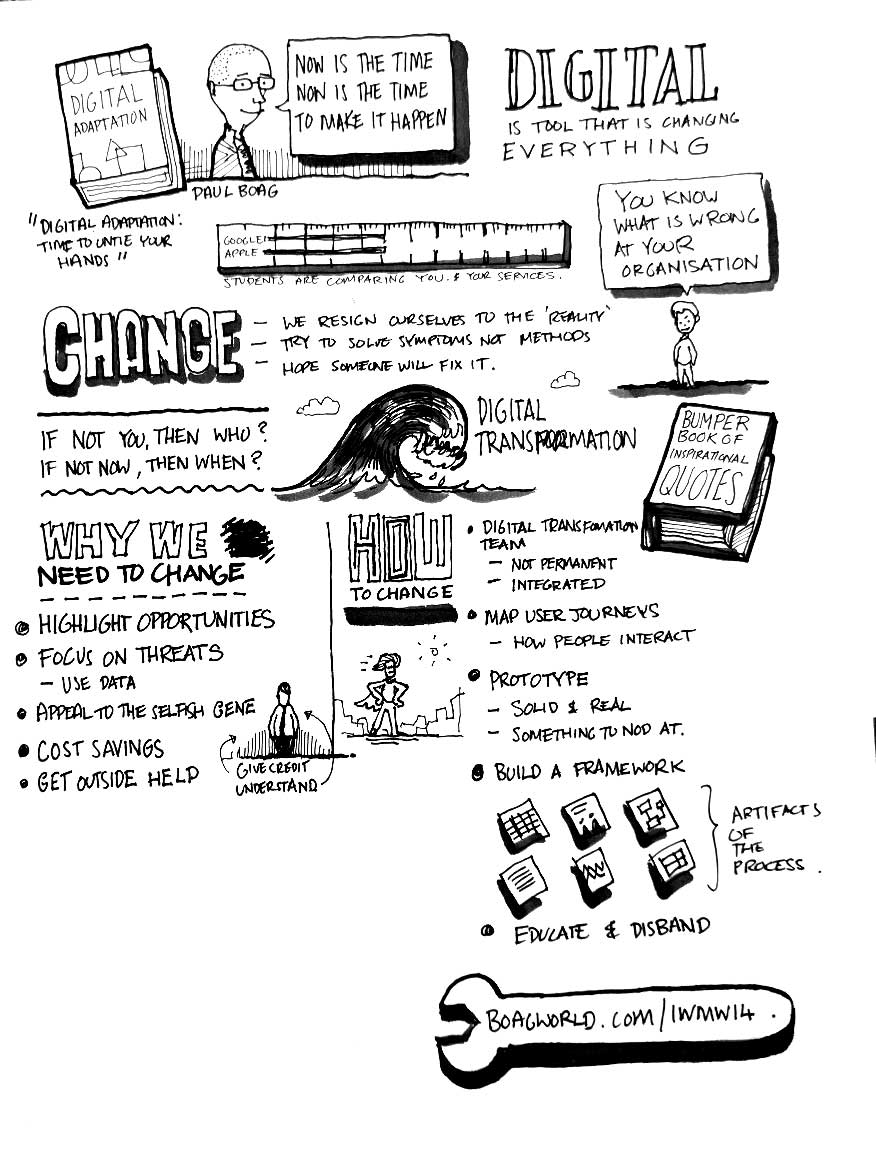 DIGITAL
ADAPTATION
NOW IS THE TIME
NON IS THE TIME
TO MAKE IT HAPPEN
PAUL BOAG
DIGITAL
IS TOOL THAT IS CHANGING
EVERYTHING
"DIGITAL ADAPTATION:
TIME TO UNTIE YOUR
HANDS"
GOOGLE
APPLE
STUDENTS ARE COMPARING YOU & YOUR SERVICES.
YOU KNOW
WHAT IS WRONG
AT YOUR
ORGANISATION
CHANGE
- WE RESIGN OURSELVES TO THE 'REALITY'
- TRY TO SOLVE SYMPTOMS NOT METHODS
- HOPE SOMEONE WILL FIX IT.
IF NOT YOU, THEN WHO?
IF NOT NOW, THEN WHEN?
DIGITAL
TRANSFORMATION
BUMPER
BOOK OF
INSPIRATIONAL
QUOTES
WHY WE
NEED TO CHANGE
• HIGHLIGHT OPPORTUNITIES
• FOCUS ON THREATS
- USE DATA
• APPEAL TO THE SELFISH GENE
• COST SAVINGS
• GET OUTSIDE HELP
GIVE CREDIT
UNDERSTAND
HOW
TO CHANGE
• DIGITAL TRANSFOMATION
TEAM
- NOT PERMANENT
- INTEGRATED
• MAP USER JOURNEYS
- HOW PEOPLE INTERACT
• PROTOTYPE
- SOLID & REAL
- SOMETHING TO NOD AT.
• BUILD A FRAMEWORK
ARTIFACTS
OF
THE
PROCESS.
• EDUCATE & DISBAND
BOAGWORLD.COM/IWMW14.